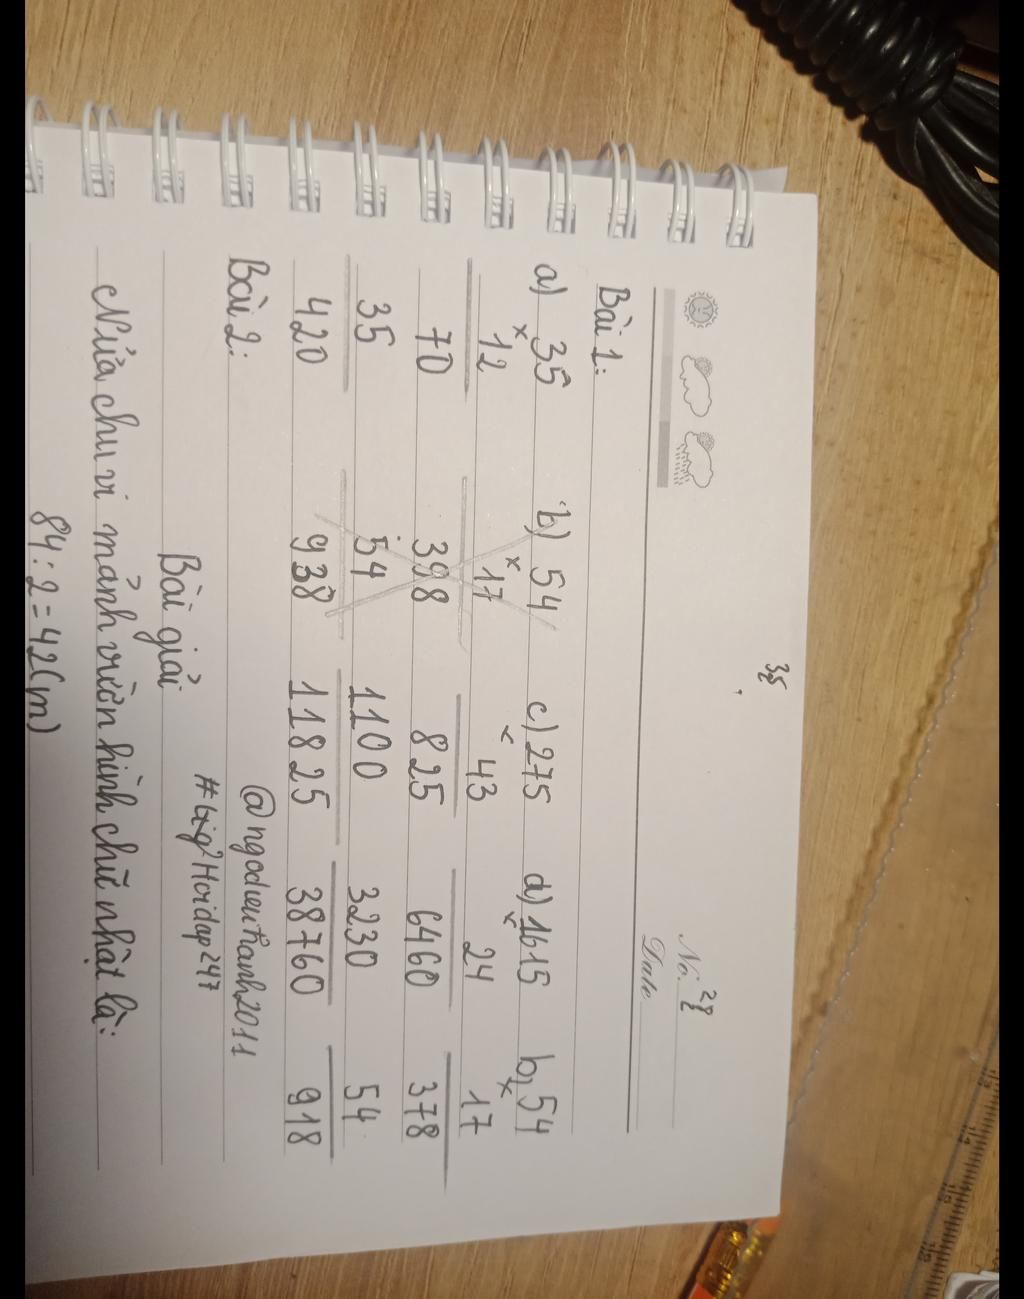 35
No. 28
Date
Bài 1:
a) 35 b) 54 c) 275 d) 1615 b, 54
× 12 × 17 × 43 × 24 × 17
70 398 825 6460 378
35 54 1100 3230 54
420 938 11825 38760 918
Bài 2: @ngodieuthanh2011
Bài giải
Nửa chu vi mảnh vườn hình chữ nhật là:
84 : 2 = 42 (m)